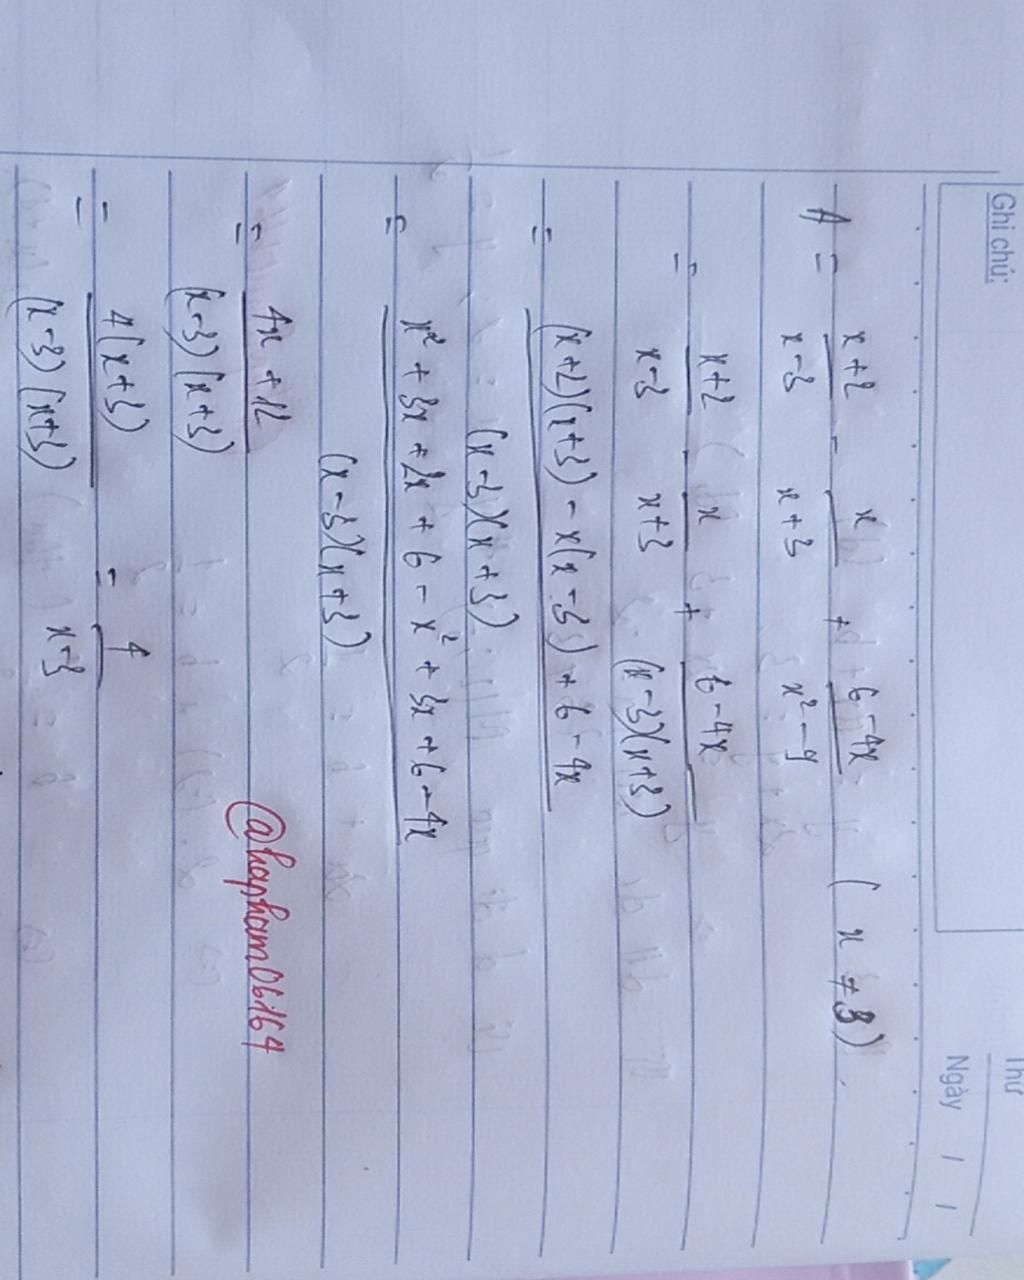 Ghi chú:
Thứ
Ngày / /
A = \frac{x+2}{x-3} - \frac{x}{x+3} + \frac{6-4x}{x^2-9} (x ≠ 3)
= \frac{x+2}{x-3} - \frac{x}{x+3} + \frac{6-4x}{(x-3)(x+3)}
= \frac{(x+2)(x+3) - x(x-3) + 6-4x}{(x-3)(x+3)}
= \frac{x^2+3x+2x+6-x^2+3x+6-4x}{(x-3)(x+3)}
= \frac{4x+12}{(x-3)(x+3)}
@hapham06164
= \frac{4(x+3)}{(x-3)(x+3)} = \frac{4}{x-3}